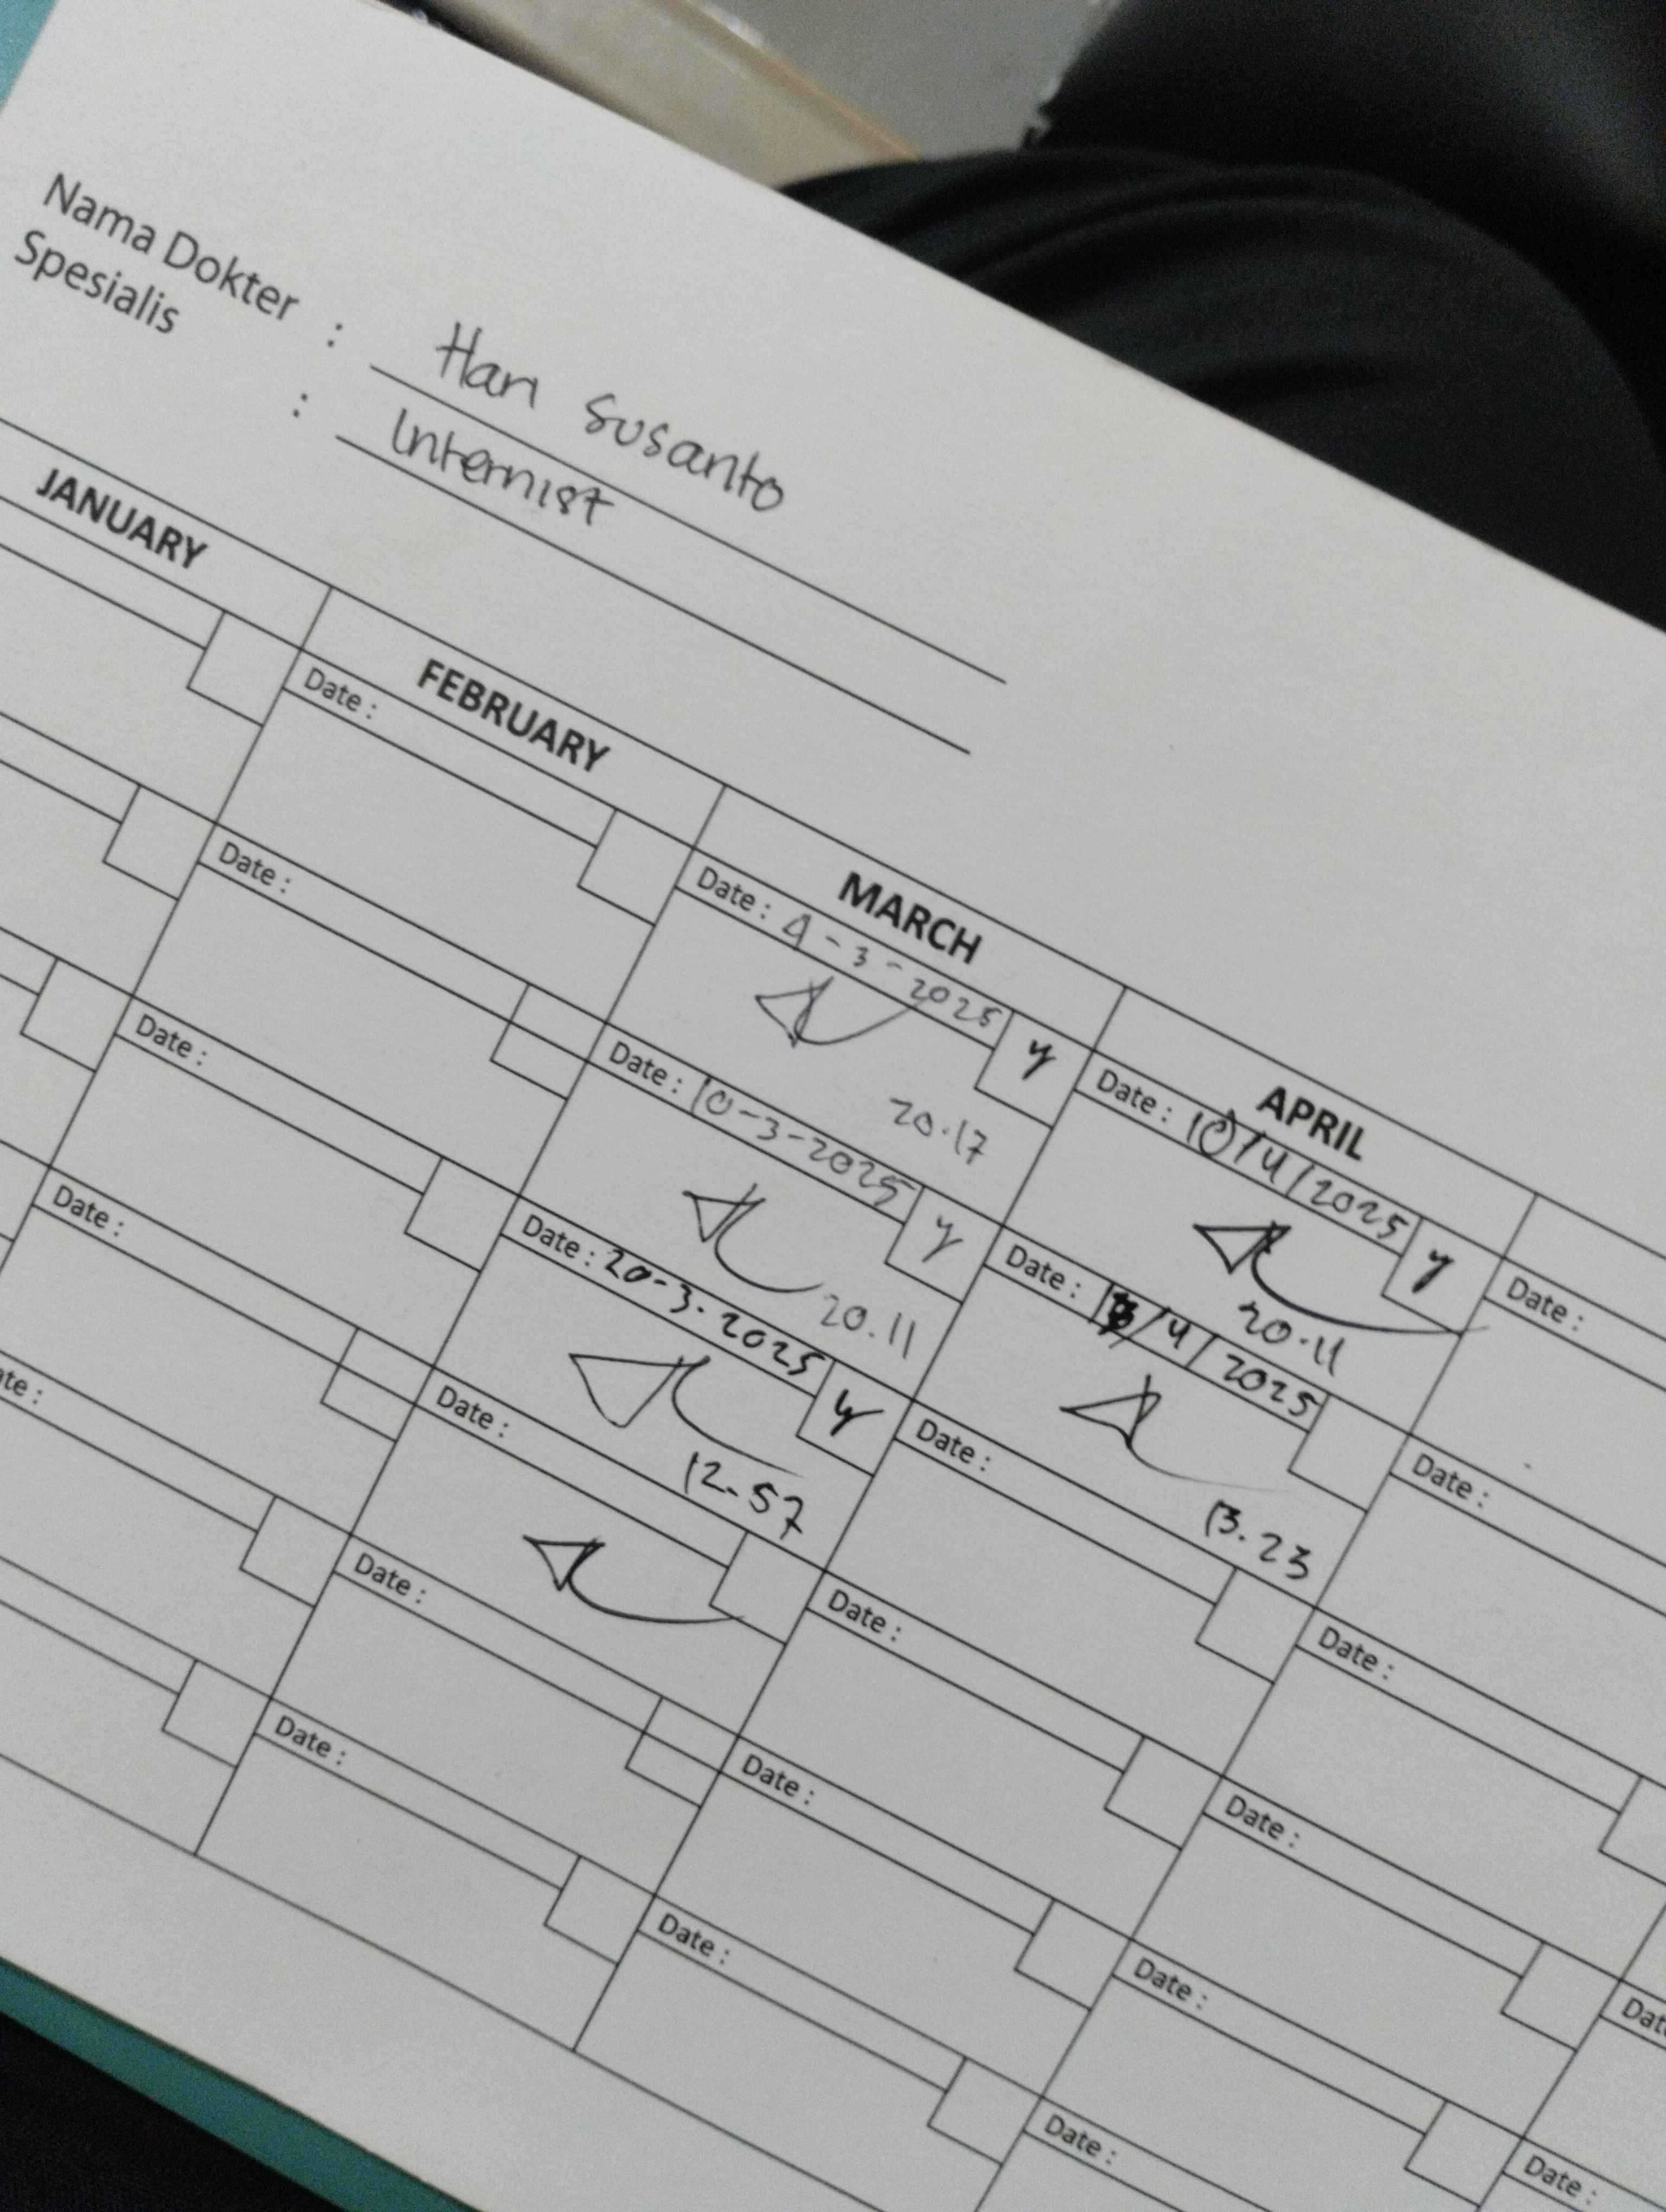 Nama Dokter : Hari Susanto
Spesialis : Internist
JANUARY FEBRUARY MARCH APRIL
Date :
Date : 4-3-2025 y
20.17
Date : 10/4/2025 y
20.11
Date :
Date :
Date : 10-3-2025 y
20.11
Date : /4/2025
13.23
Date :
Date :
Date : 20-3-2025 y
12.57
Date :
Date :
Date :
Date :
Date :
Date :
Date :
Date :
Date :
Date :
Date :
Date :
Date :
Date :